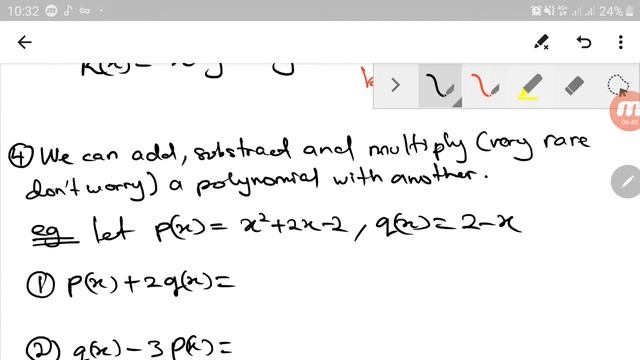 10:32 M 4G+ 24%
k(x) =
④ We can add, substract and multiply (very rare
don't worry) a polynomial with another.
eg Let p(x) = x²+2x-2, q(x) = 2-x
① p(x) + 2q(x) =
② q(x) - 3 p(x) =
06:40